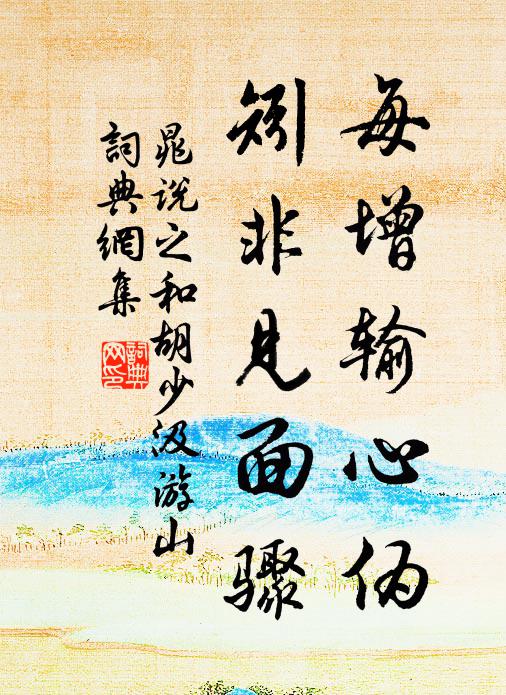 每增输心伪
矧非见面骤
晁说之和胡少汲游山
詞典網集
詞典
网印